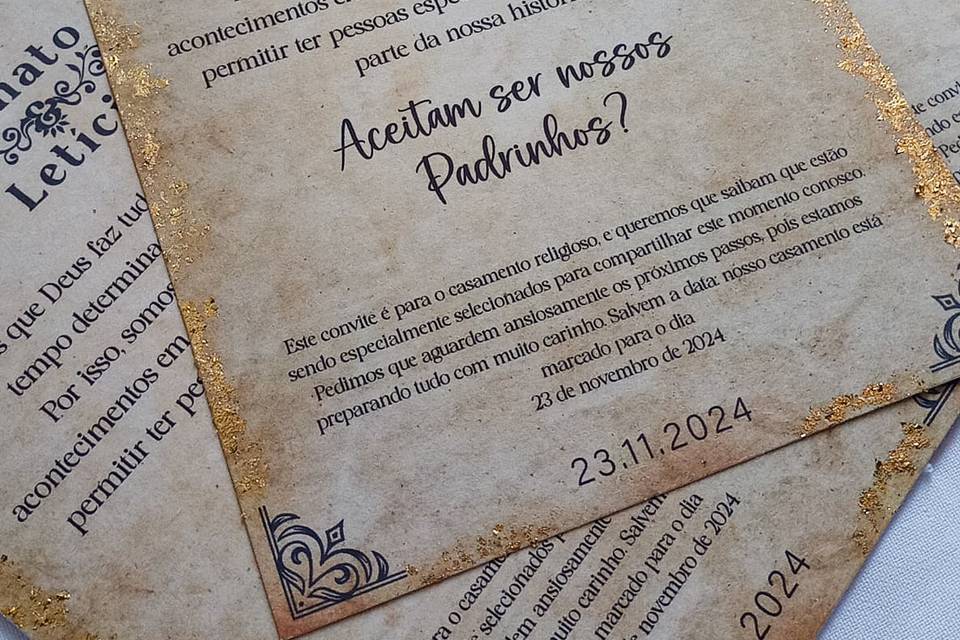 acontecimentos e
permitir ter pessoas espe
parte da nossa histór
Aceitam ser nossos
Padrinhos?
Este convite é para o casamento religioso, e queremos que saibam que estão
sendo especialmente selecionados para compartilhar este momento conosco.
Pedimos que aguardem ansiosamente os próximos passos, pois estamos
preparando tudo com muito carinho. Salvem a data: nosso casamento está
marcado para o dia
23 de novembro de 2024
23.11.2024
nato
&
Letíci
s que Deus faz tud
tempo determina
Por isso, somos
acontecimentos em
permitir ter pe
ra o casame
selecionados p
dem ansiosamente
uito carinho. Salvem
marcado para o dia
de novembro de 2024
2024
te conv
ndo es
Ped